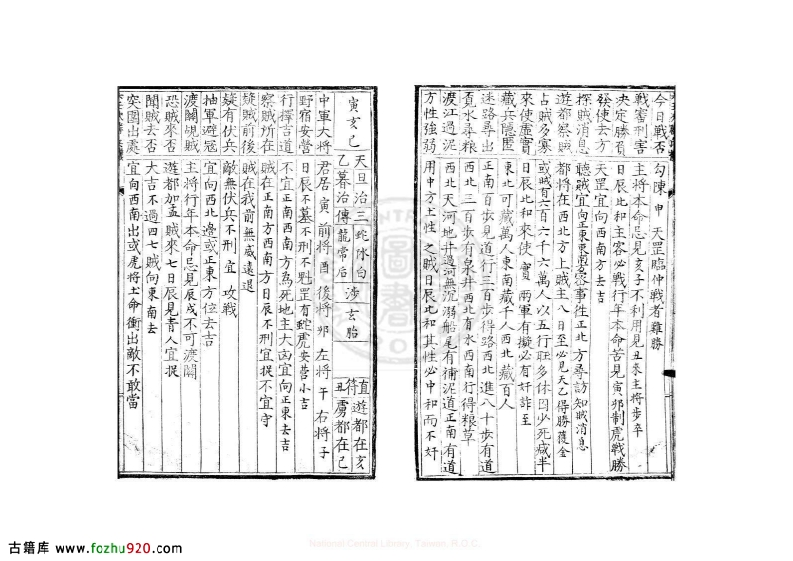 今日戰否 勾陳申 天罡臨仲戰者難勝
戰審刑害 主將本命忌見亥子不利用見丑來主將步卒
決定勝負 日辰比和主客必戰行年本命苦見寅卯制虎戰勝
發使去方 天罡宜向西南方去吉
探賊消息 聽賊宜向正東東南客事徃正北方尋訪知賊消息
遊都察賊 都將在西北方上賊主八日至必見天乙得勝獲金
占賊及寨 或賊有六百六千六萬人以五行旺多休囚少死減半
來使虛實 日辰比和來使實 兩軍有擬必有奸詐至
藏兵隱匿 東北可藏萬人東南藏千人西北藏百人
迷路尋出 正南百步見道行三百步得路西北進八十步有道
覓水尋粮 西北三百步有泉井西北有水西南行得粮草
渡江過泥 西北天河地井過河無沉溺船尾有衝泥道正南有道
方性強弱 用中方土性 之賊日辰比和其性必中和而不奸
寅亥巳 天旦治三蛇陰白 涉 直遊都在亥
乙暮治傳龍常后 玄胎 符丑虜都在巳
中軍大將 君居寅 前將酉 後將卯 左將午 右將子
野宿安營 日辰不墓不刑不剋罡有蛇虎安營小吉
行擇吉道 不宜正南西南方為死地主大凶宜向正東去吉
察賊所在 賊在正南方西南方日辰不刑宜捉不宜守
疑賊前後 賊在我前無威遠退
疑有伏兵 敵無伏兵不刑宜攻戰
抽軍避寇 宜向西北邊或正東方位去吉
渡關覘賊 主將行年本命忌見辰戌不可渡關
恐賊來否 遊都加孟賊來七日辰見青人宜捉
聞賊去否 大吉不過四七賊向東南去
突圍出處 宜向西南出或虎將土命衝出敵不敢當
National Central Library, Taiwan, R.O.C.
古籍库 www.fozhu920.com